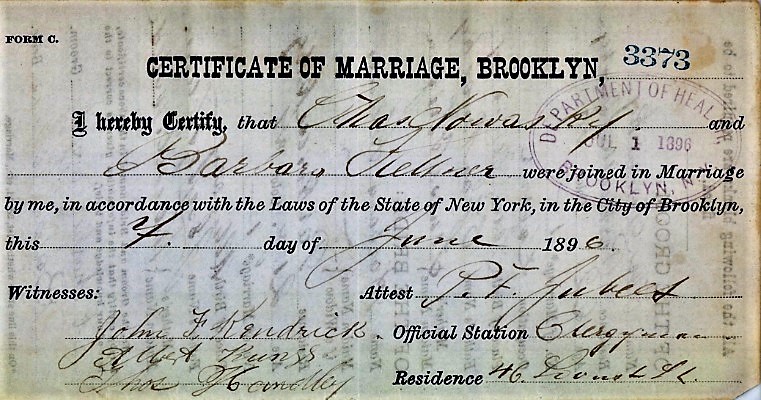 FORM C.
3373
CERTIFICATE OF MARRIAGE, BROOKLYN,
DEPARTMENT OF HEALTH
JUL 1 1896
BROOKLYN, N.Y.
I hereby Certify, that Chas Nowasky and
Barbara were joined in Marriage
by me, in accordance with the Laws of the State of New York, in the City of Brooklyn,
this 7. day of June 1896.
Witnesses:
Attest P. F.
John F Kendrick. Official Station Clergyman
Albert
Handley
Residence 46. St.